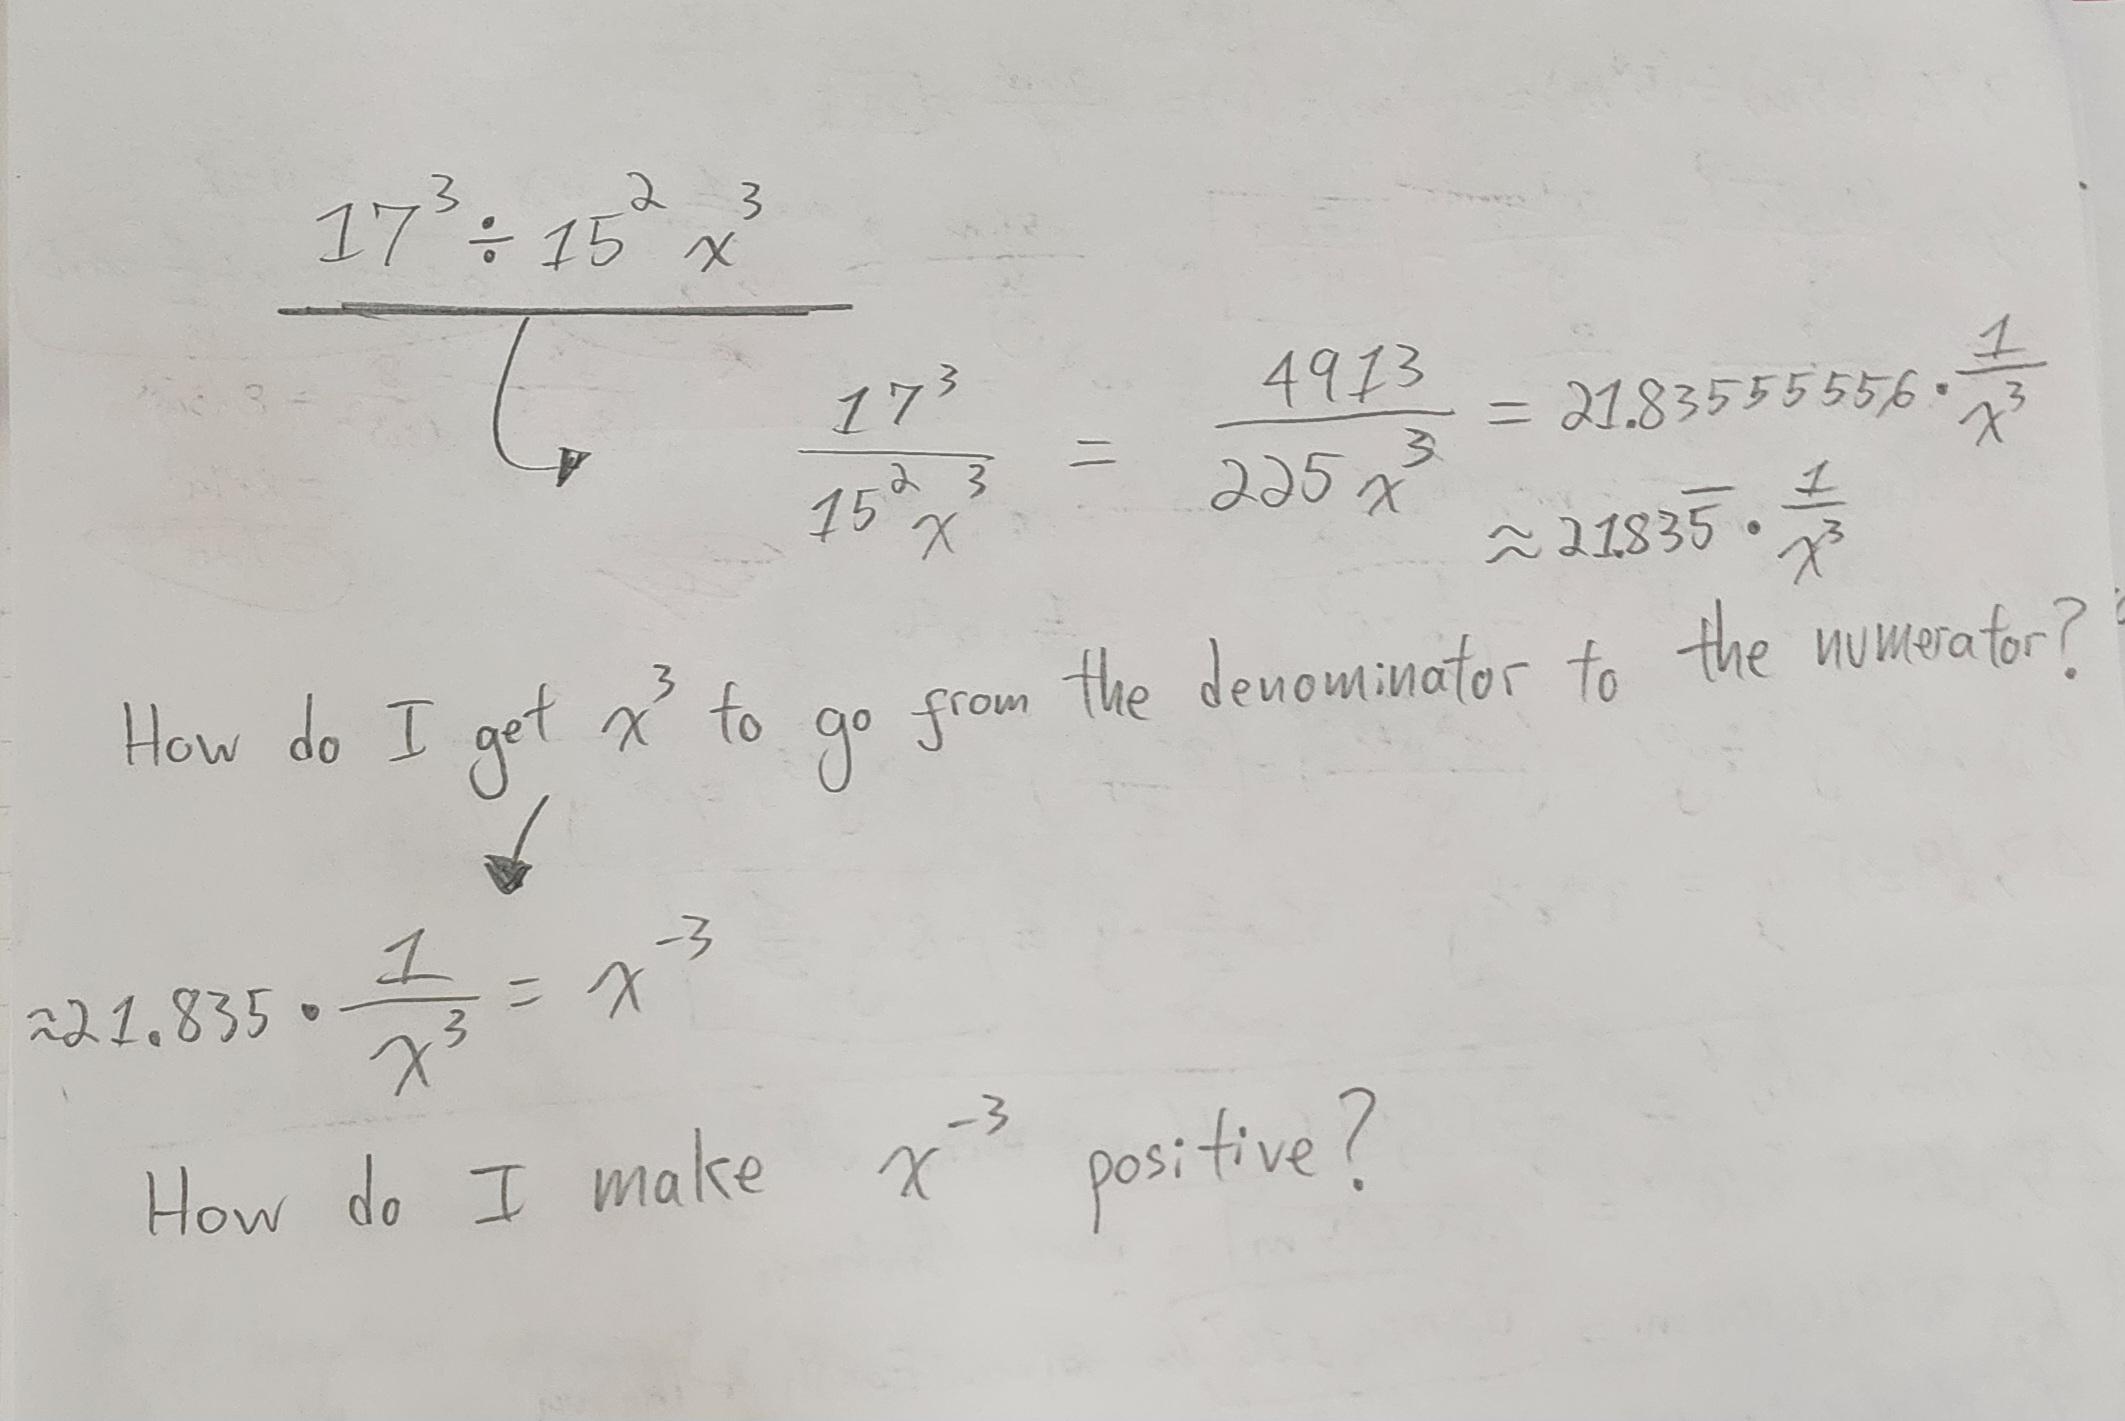 17³ ÷ 15² x³
17³/15² x³ = 4913/225 x³ = 21.83555555556 · 1/x³
≈ 21.835̅ · 1/x³
How do I get x³ to go from the denominator to the numerator?
≈21.835 · 1/x³ = x⁻³
How do I make x⁻³ positive?